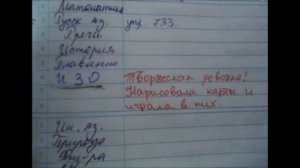 Математика
Русск. яз. упр. 733.
Речь
История
Плавание
ИЗО Творческая ревака!
Нарисовала карты и
играла в них.
Ин. яз.
Природа
Физ-ра